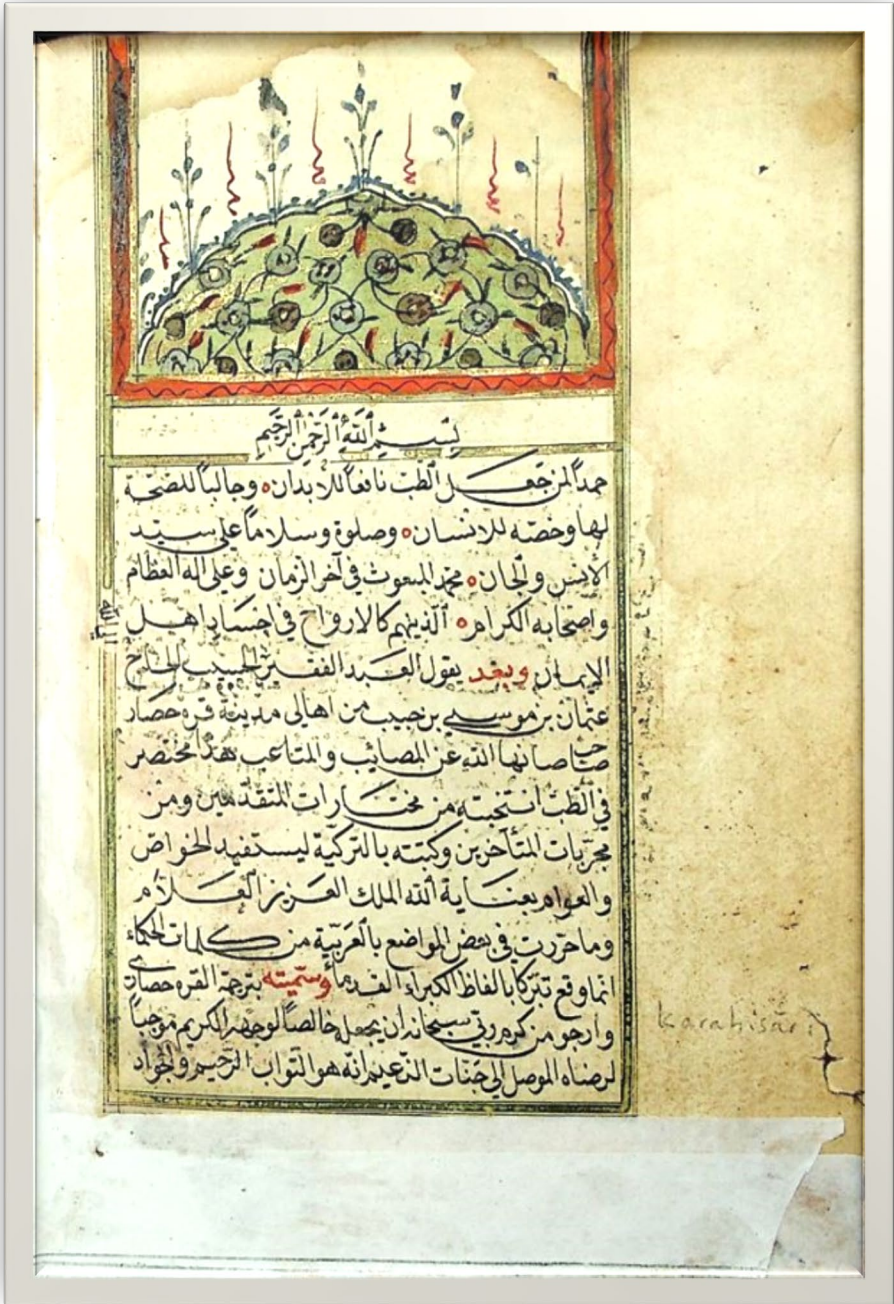 بسم الله الرحمن الرحيم
حمداً لمن جعل الطب نافعاً للأبدان ه وجالباً للصحة
لها وخصه للانسان ه وصلوة وسلاماً على سيد
الانس والجان ه محمد المبعوث في آخر الزمان وعلى اله العظام
واصحابه الكرام ه الذينهم كالارواح في اجساد اهل
الايمان وبعد يقول العبد الفقير الحسيب الحاج
عثمان بن موسى بن حبيب من اهالى مدينة قره حصار
صاحب صانها الله عن المصائب والمتاعب هذا مختصر
في الطب انتخبته من مختارات المتقدمين ومن
مجربات المتأخرين وكتبته بالتركية ليستفيد الخواص
والعوام بعناية الله الملك العزيز العلام
وما حررت في بعض المواضع بالعربية من كلمات الحكماء
انما وقع تبركا بالفاظ الكبراء القدماء وسميته بترجمة القره حصارى
وارجو من كرم ربي سبحانه ان يجعله خالصاً لوجهه الكريم موجباً
لرضاه الموصل الى جنات النعيم انه هو التواب الرحيم والجواد
karahisâri